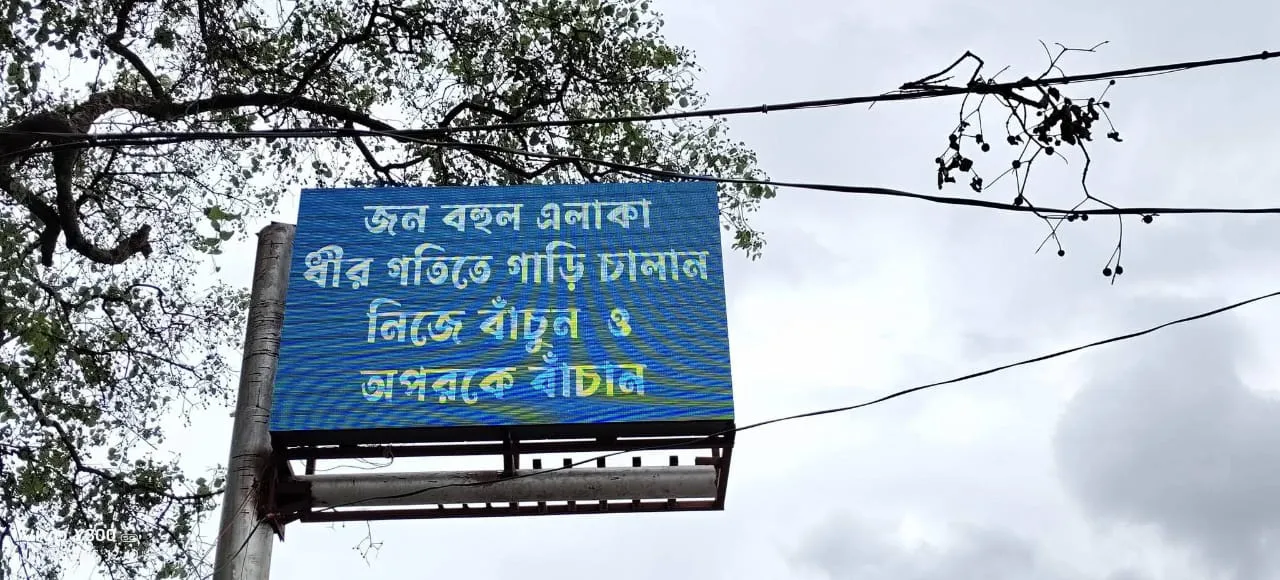 জন বহুল এলাকা
ধীর গতিতে গাড়ি চালান
নিজে বাঁচুন ও
অপরকে বাঁচান